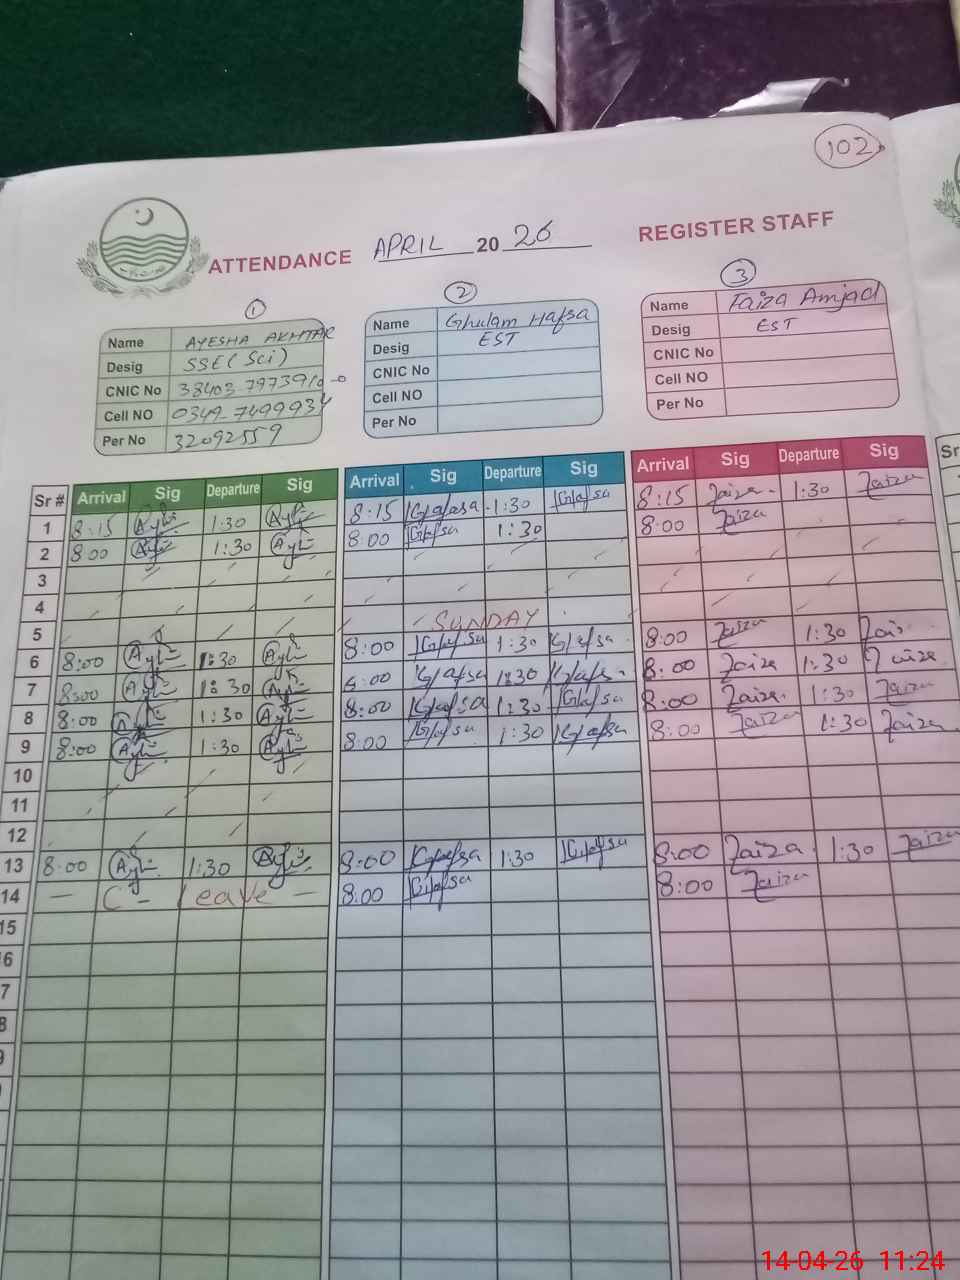 102
ATTENDANCE APRIL 20 26 REGISTER STAFF
1 2 3
Name AYESHA AKHTAR
Desig SSE (Sci)
CNIC No
Cell NO 0349-7499934
Per No 32092559
Name Ghulam Hafsa
Desig EST
CNIC No
Cell NO
Per No
Name Faiza Amjad
Desig EST
CNIC No
Cell NO
Per No
Sr # Arrival Sig Departure Sig Arrival Sig Departure Sig Arrival Sig Departure Sig Sr
1 8:15 1:30 8:15 1:30 8:15 Faiza 1:30 Faiza
2 8:00 1:30 8:00 1:30 8:00 Faiza
3
4
5 SUNDAY
6 8:00 1:30 8:00 1:30 8:00 Faiza 1:30
7 8:00 1:30 8:00 1:30 8:00 Faiza 1:30 Faiza
8 8:00 1:30 8:00 1:30 8:00 Faiza 1:30 Faiza
9 8:00 1:30 8:00 1:30 8:00 Faiza 1:30 Faiza
10
11
12
13 8:00 1:30 8:00 1:30 8:00 Faiza 1:30 Faiza
14 – C - Leave – 8:00 8:00 Faiza
15
6
7
8
9
14-04-26 11:24